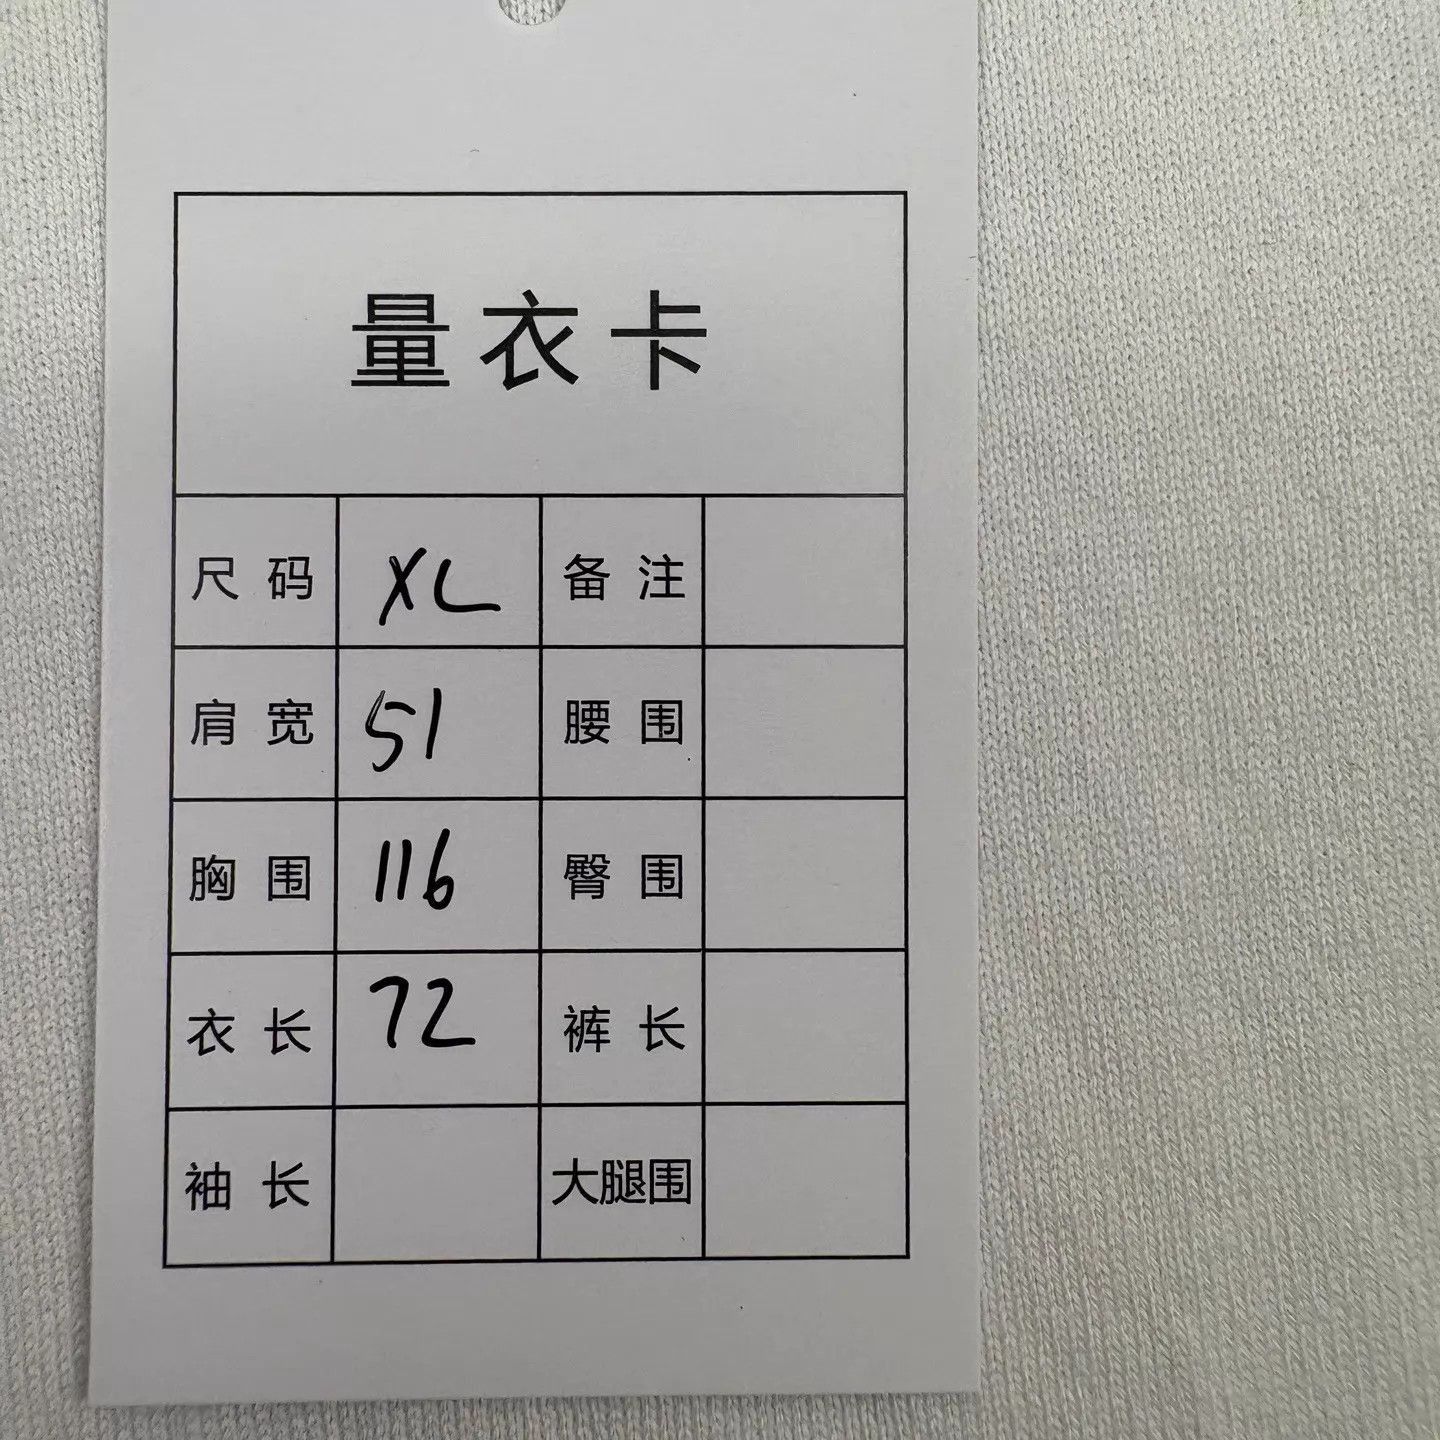 量衣卡
尺码 XL 备注
肩宽 51 腰围
胸围 116 臀围
衣长 72 裤长
袖长 大腿围